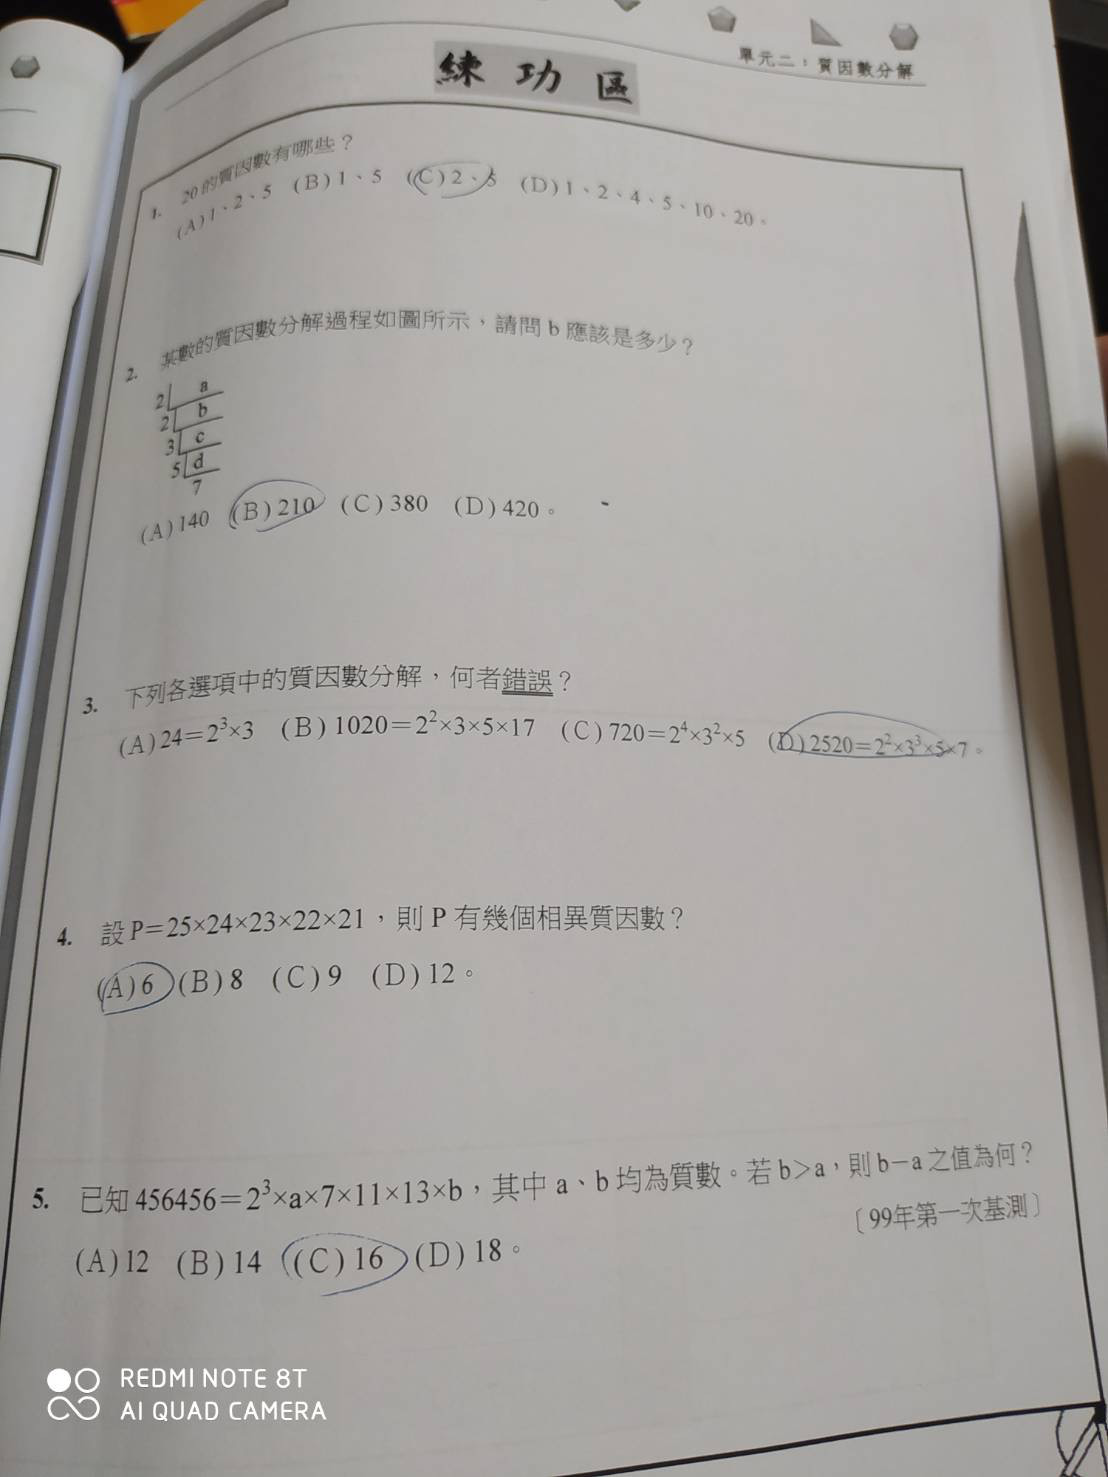 單元二：質因數分解
練功區
1. 20的質因數有哪些？
(A)1、2、5 (B)1、5 (C)2、5 (D)1、2、4、5、10、20。
2. 某數的質因數分解過程如圖所示，請問 b 應該是多少？
2 a
2 b
3 c
5 d
7
(A)140 (B)210 (C)380 (D)420。
3. 下列各選項中的質因數分解，何者錯誤？
(A)24=2³×3 (B)1020=2²×3×5×17 (C)720=2⁴×3²×5 (D)2520=2²×3³×5×7。
4. 設 P=25×24×23×22×21，則 P 有幾個相異質因數？
(A)6 (B)8 (C)9 (D)12。
5. 已知 456456=2³×a×7×11×13×b，其中 a、b 均為質數。若 b>a，則 b−a 之值為何？
〔99年第一次基測〕
(A)12 (B)14 (C)16 (D)18。
REDMI NOTE 8T
AI QUAD CAMERA